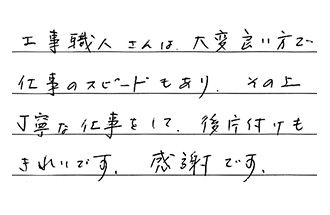 工事職人さんは、大変良い方で
仕事のスピードもあり、その上
丁寧な仕事をして、後片付けも
きれいです。感謝です。